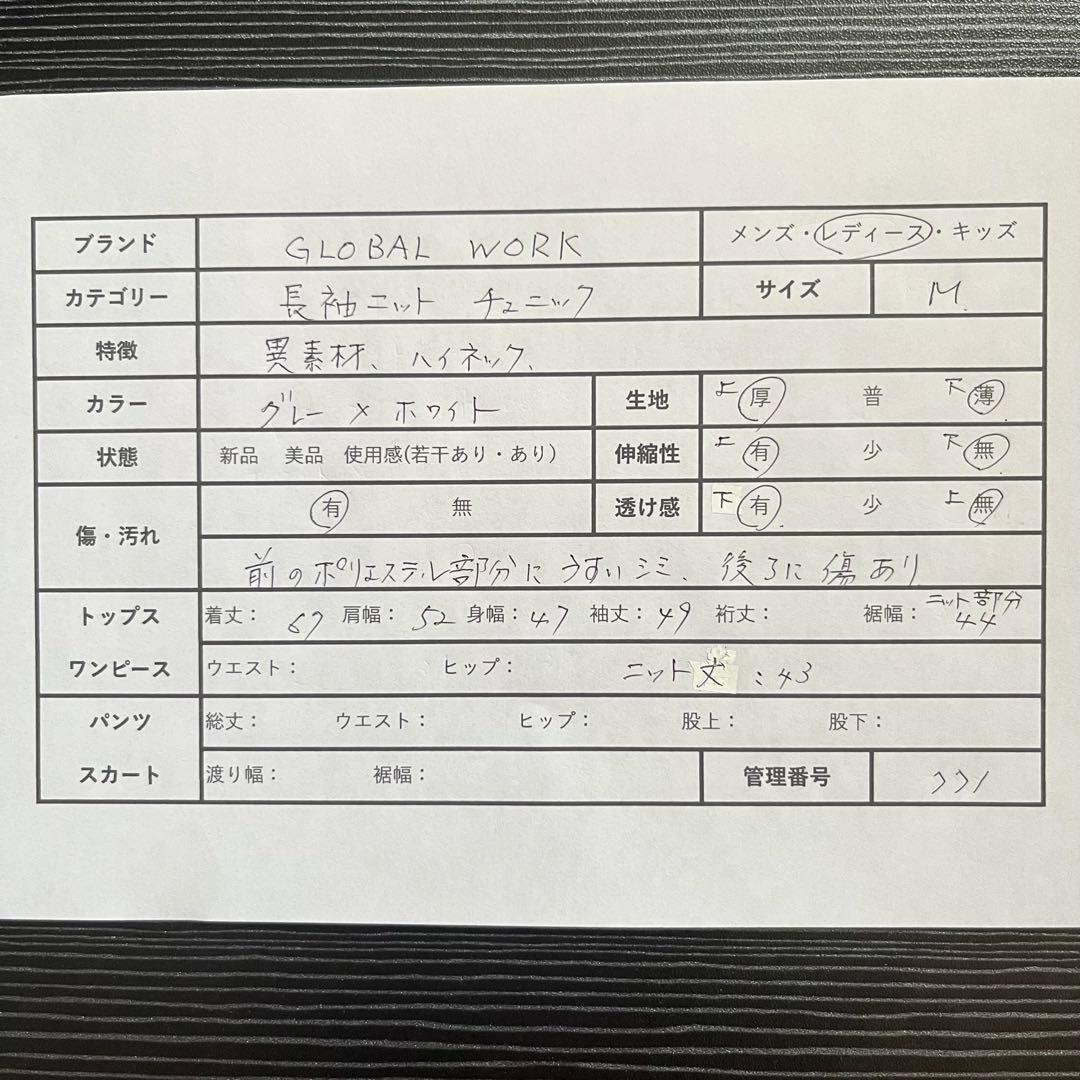 ブランド GLOBAL WORK メンズ・レディース・キッズ
カテゴリー 長袖ニット チュニック サイズ M
特徴 異素材、ハイネック、
カラー グレー×ホワイト 生地 上 厚 普 下 薄
状態 新品 美品 使用感(若干あり・あり) 伸縮性 上 有 少 下 無
傷・汚れ 有 無 透け感 下 有 少 上 無
前のポリエステル部分にうすいシミ、後ろに傷あり
トップス 着丈: 67 肩幅: 52 身幅: 47 袖丈: 49 裄丈: 裾幅: ニット部分 44
ワンピース ウエスト: ヒップ: ニット丈:43
パンツ 総丈: ウエスト: ヒップ: 股上: 股下:
スカート 渡り幅: 裾幅: 管理番号 771